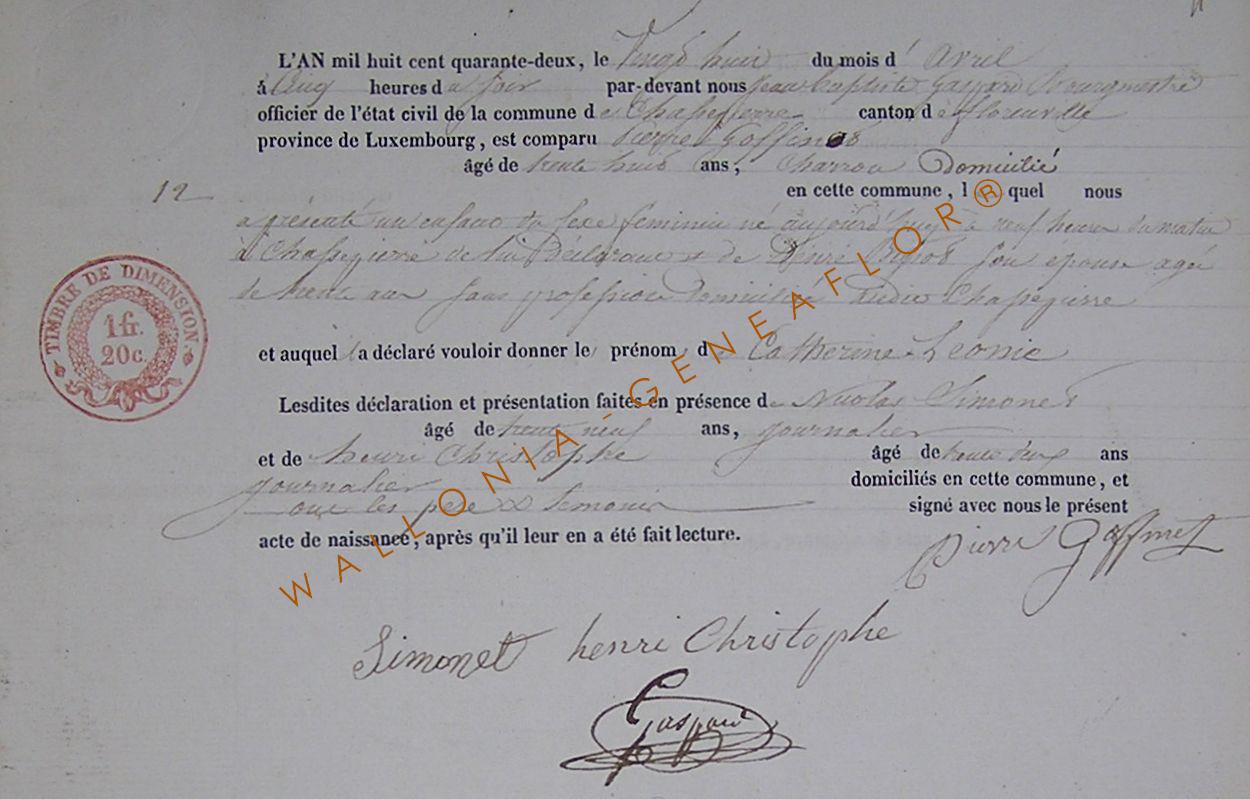 L'AN mil huit cent quarante-deux, le Vingt huit du mois d' Avril
à Cinq heures du Soir par-devant nous Jean Baptiste Gaspard Bourgmestre
officier de l'état civil de la commune de Chassepierre canton de florenville
province de Luxembourg, est comparu pierre Goffinet
âgé de trente huit ans, charron Domicilié
en cette commune, lequel nous
12
a présenté un enfant du sexe feminin né aujourd'huy à neuf heures du matin
à Chassepierre de lui Déclarant et de son epouse agée
de trente ans sans profession Domiciliée audit Chassepierre
et auquel il a déclaré vouloir donner le prénom de Catherine Leonie
Lesdites déclaration et présentation faites en présence de Nicolas Simonet
âgé de trente neuf ans, journalier
et de henri Christophe âgé de trente deux ans
journalier domiciliés en cette commune, et
ont les pere et temoins signé avec nous le présent
acte de naissance, après qu'il leur en a été fait lecture.
Pierre Goffinet
Simonet henri Christophe
Gaspard
TIMBRE DE DIMENSION.
1 fr.
20 c.
WALLONIA - GENEAFLOR ®